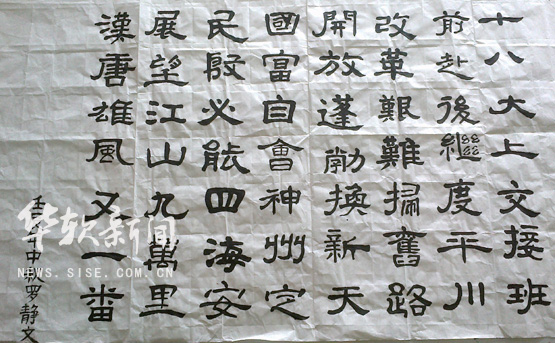 十八大上交接班
前赴後繼度平川
改革艱難掃舊路
開放蓬勃換新天
國富自會神州定
民殷必能四海安
展望江山九萬里
漢唐雄風又一番
壬辰年中秋罗静文
华软新闻
NEWS.SISE.COM.CN